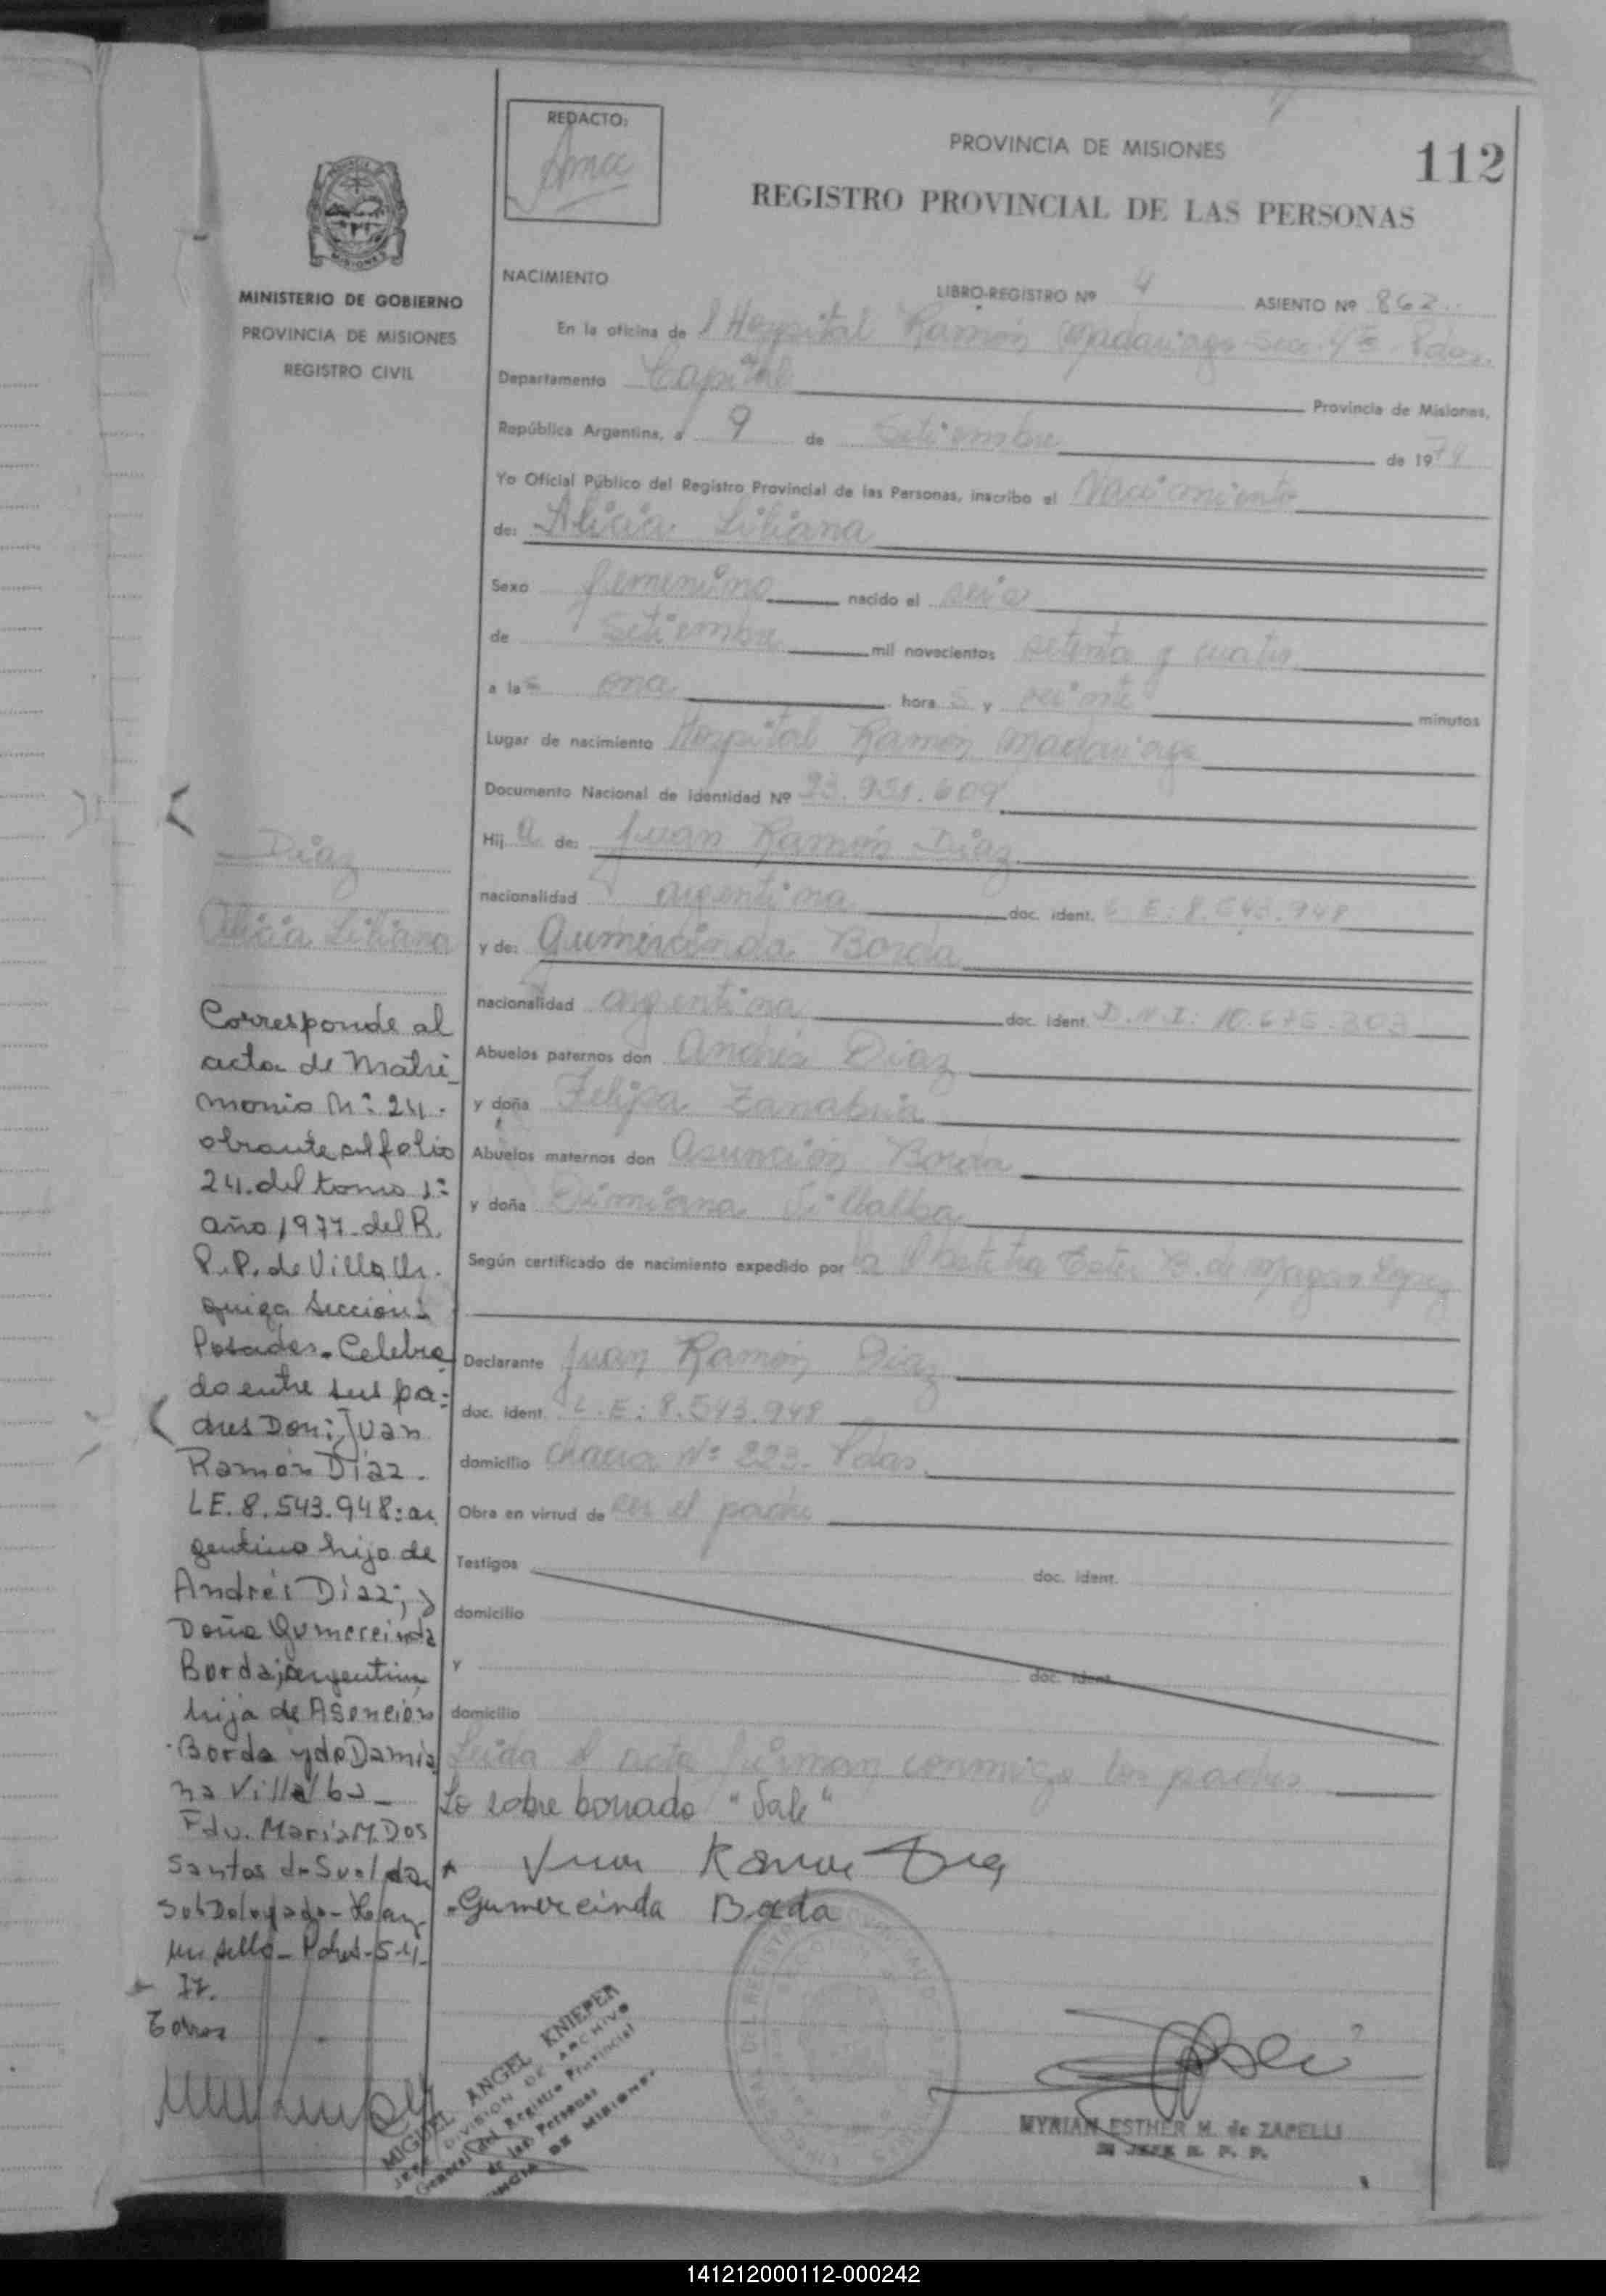 REDACTO:
PROVINCIA DE MISIONES
112
REGISTRO PROVINCIAL DE LAS PERSONAS
MINISTERIO DE GOBIERNO
PROVINCIA DE MISIONES
REGISTRO CIVIL
NACIMIENTO
LIBRO-REGISTRO Nº 4 ASIENTO Nº 862
En la oficina de l Hospital Ramón Madariaga Secc. 4ª Pdas.
Departamento Capital Provincia de Misiones,
República Argentina, a 9 de Setiembre de 1974
Yo Oficial Público del Registro Provincial de las Personas, inscribo el Nacimiento
de: Alicia Liliana
Sexo femenino nacido el seis
de Setiembre mil novecientos setenta y cuatro
a las una hora s y veinte minutos
Lugar de nacimiento Hospital Ramón Madariaga
Documento Nacional de Identidad Nº 23.951.609
Hij a de: Juan Ramón Diaz
nacionalidad argentina doc. ident. L.E: 8.543.948
y de: Gumercinda Borda
nacionalidad argentina doc. ident. D.N.I: 10.676.303
Abuelos paternos don Andrés Diaz
y doña Felipa Zanabria
Abuelos maternos don Asunción Borda
y doña Dimiana Villalba
Según certificado de nacimiento expedido por la Obstetra Ester B. de Magan Lopez
Declarante Juan Ramón Diaz
doc. ident. L.E: 8.543.948
domicilio chacra Nº 223. Pdas.
Obra en virtud de ser el padre
Testigos doc. ident.
domicilio
y doc. ident.
domicilio
Leida el acta firman conmigo los padres
Lo sobre borrado "Vale"
Juan Ramon Diaz
Gumercinda Borda
Diaz
Alicia Liliana
Corresponde al
acta de Matri
monio Nº 24.
obrante al folio
24. del tomo 1º
año 1977 del R.
P.P. de Villa Ur.
quiza Sección
Posadas. Celebra
do entre sus pa-
dres Don: Juan
Ramón Díaz.
LE. 8.543.948: ar
gentino hijo de
Andrés Díaz; y
Doña Gumercinda
Borda; argentina
hija de Asención
Borda y de Damia
na Villalba_
Fdo. María M. Dos
Santos de Sualdea
Sub Delegado - Hay
un sello - Pdas - 5-4-
77.
MIGUEL ANGEL KNIEPER
JEFE DIVISION DE ARCHIVO
General del Registro Provincial
de las Personas
PROVINCIA DE MISIONES
MYRIAN ESTHER M. de ZAPELLI
JEFE R. P. P.
141212000112-000242